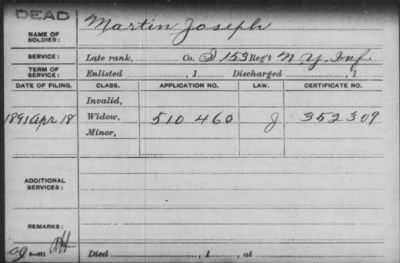 DEAD
NAME OF SOLDIER: Martin Joseph
SERVICE: Late rank, Co. I 153 Reg't N Y. Inf
TERM OF SERVICE: Enlisted , 1 Discharged , 1
DATE OF FILING. CLASS. APPLICATION NO. LAW. CERTIFICATE NO.
Invalid,
1891 Apr 18 Widow, 510 460 J 352 309
Minor,
ADDITIONAL SERVICES:
REMARKS:
Died , 1 , at